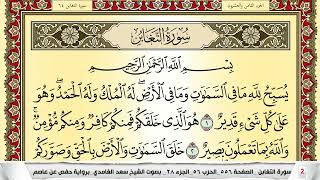 الجزء الثامن والعشرون
سورة التغابن ٦٤
سُورَةُ التَّغَابُنِ
بِسْمِ اللَّهِ الرَّحْمَٰنِ الرَّحِيمِ
يُسَبِّحُ لِلَّهِ مَا فِي السَّمَٰوَٰتِ وَمَا فِي الْأَرْضِ لَهُ الْمُلْكُ وَلَهُ الْحَمْدُ وَهُوَ
عَلَىٰ كُلِّ شَيْءٍ قَدِيرٌ ١ هُوَ الَّذِي خَلَقَكُمْ فَمِنكُمْ كَافِرٌ وَمِنكُم مُّؤْمِنٌ
وَاللَّهُ بِمَا تَعْمَلُونَ بَصِيرٌ ٢ خَلَقَ السَّمَٰوَٰتِ وَالْأَرْضَ بِالْحَقِّ وَصَوَّرَكُمْ
سورة التغابن الصفحة ٥٥٦ الحزب ٥٦ الجزء ٢٨ بصوت الشيخ سعد الغامدي برواية حفص عن عاصم
2